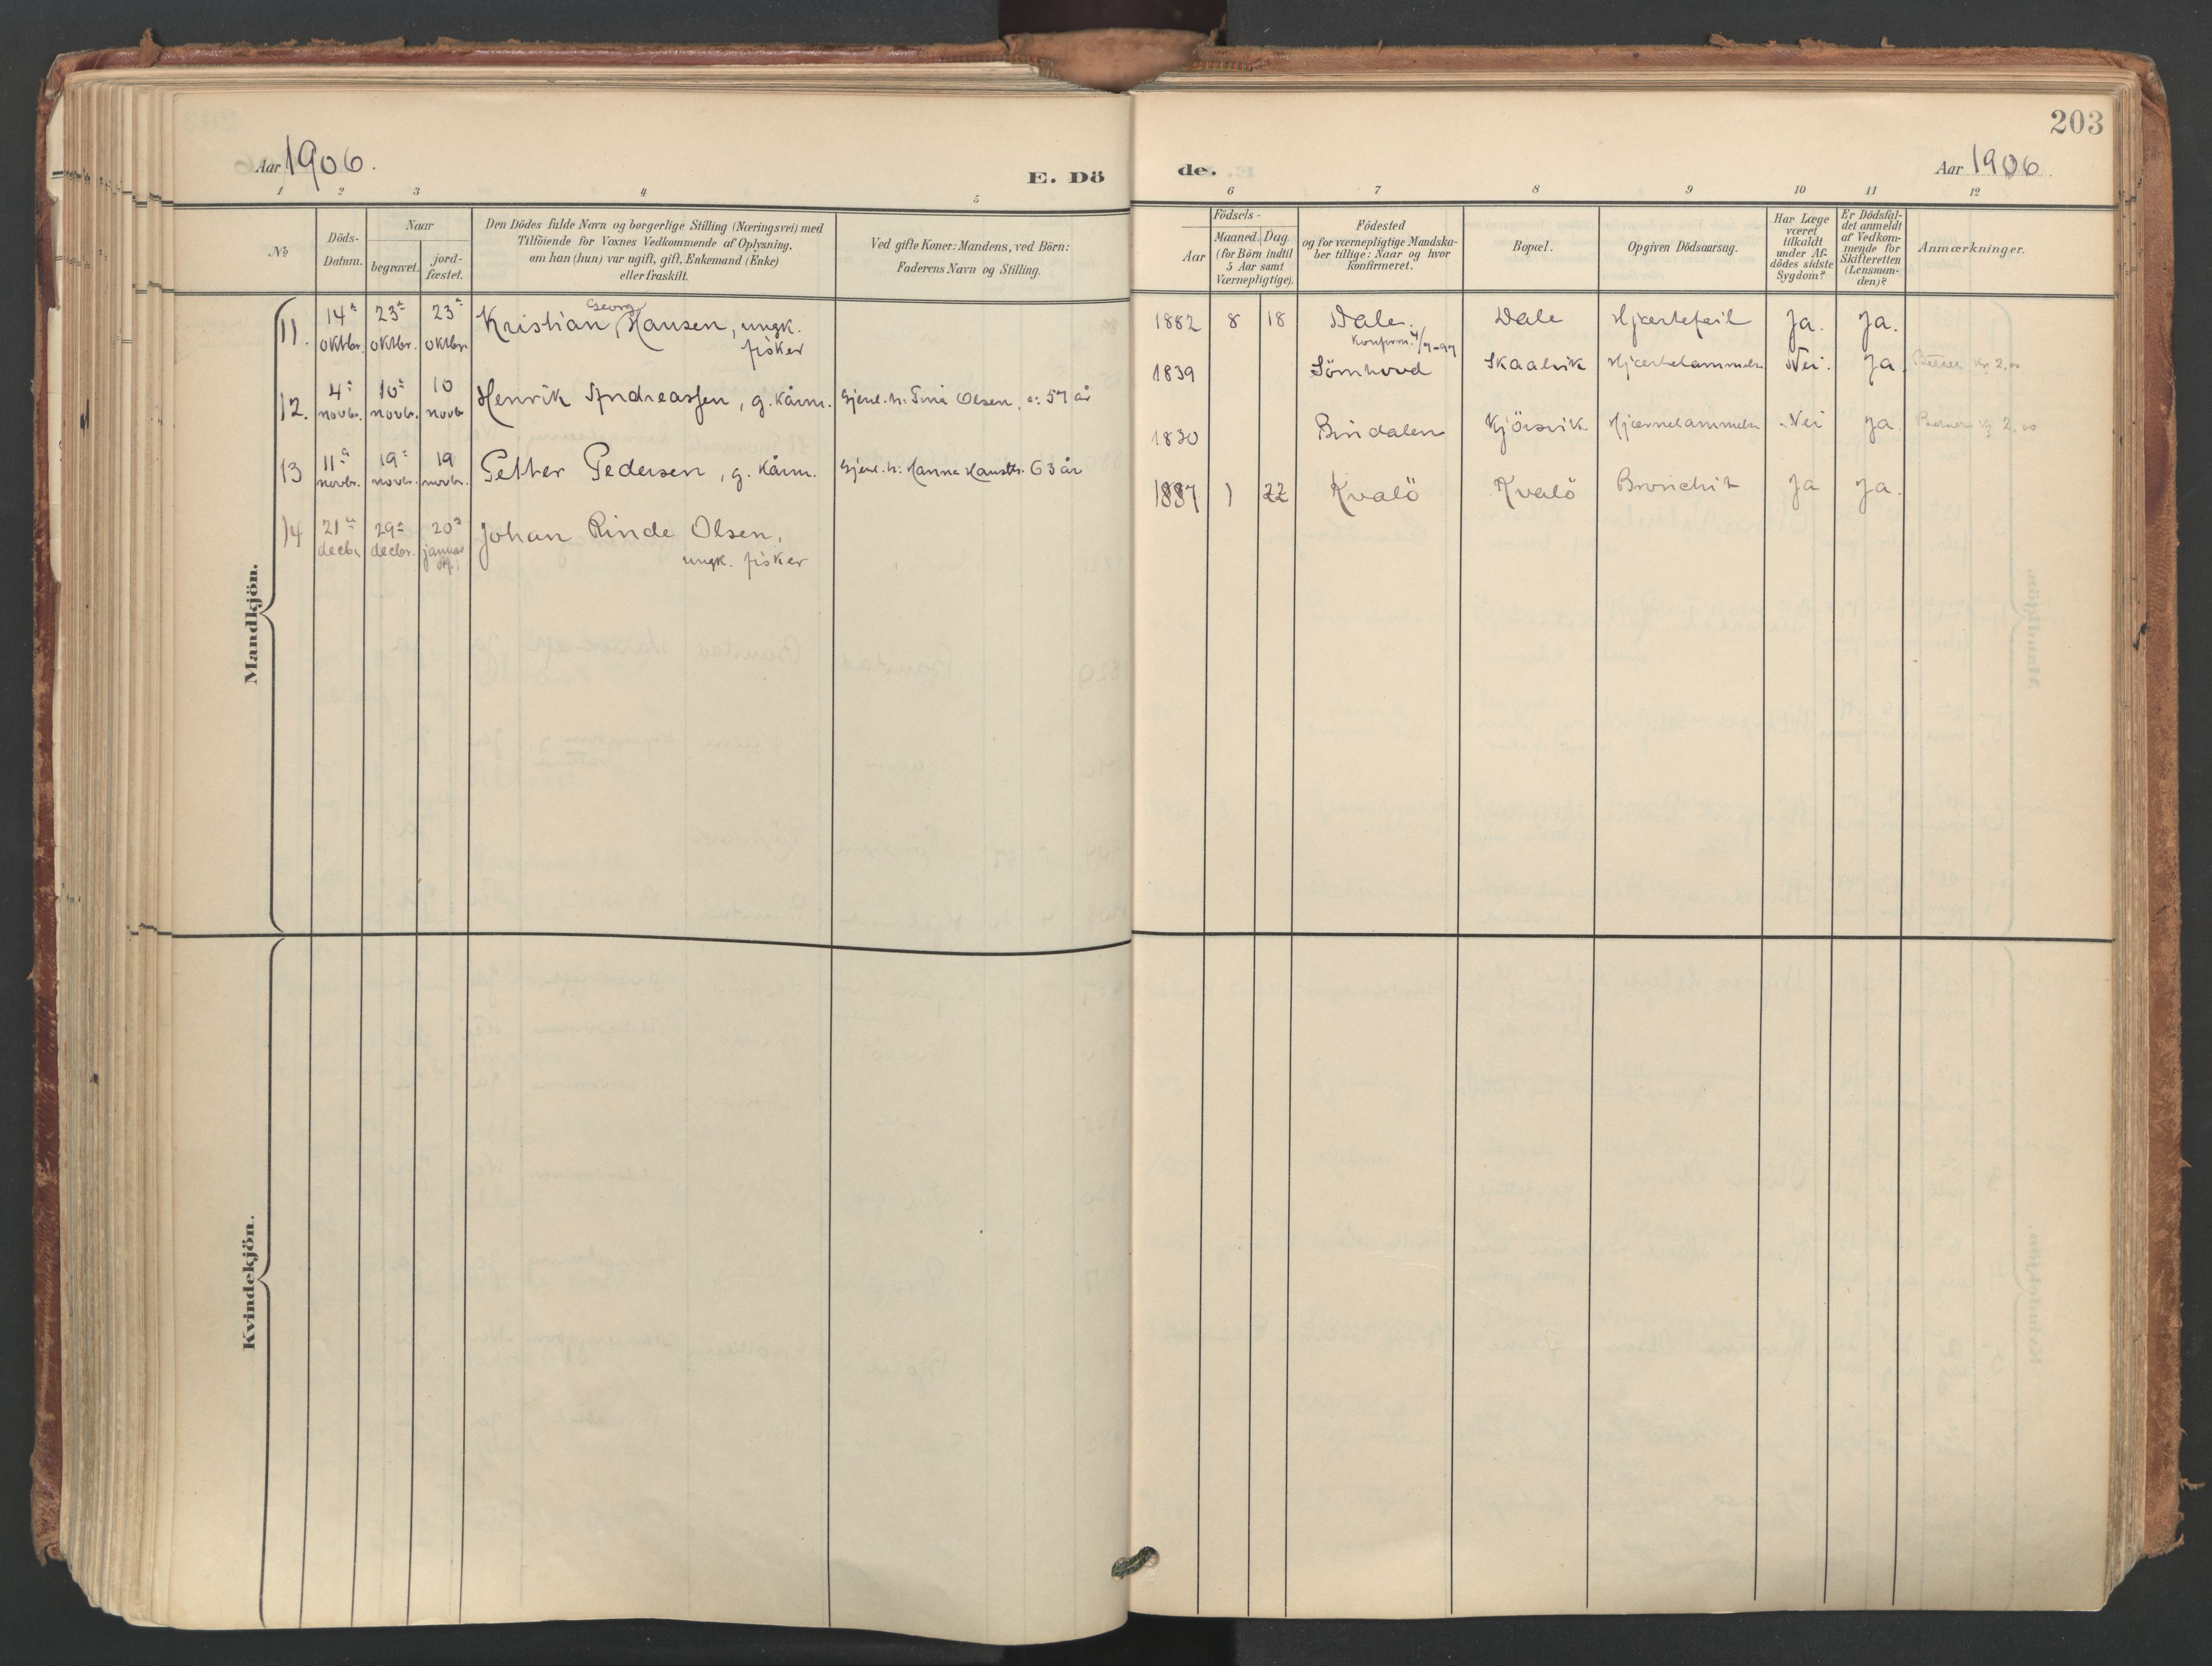 203
Aar 1906.
E. Dö
de.
Aar 1906.
1 2 3 4 5
6 7 8 9 10 11 12
No
Döds-
Datum.
Naar
begravet.
jord-
fæstet.
Den Dödes fulde Navn og borgerlige Stilling (Næringsvei) med
Tilföiende for Voxnes Vedkommende af Oplysning,
om han (hun) var ugift, gift, Enkemand (Enke)
eller fraskilt.
Ved gifte Koner: Mandens, ved Börn:
Faderens Navn og Stilling.
Födsels-
Aar
Maaned. Dag.
(for Börn indtil
5 Aar samt
Værnepligtige).
Födested
og for værnepligtige Mandska-
ber tillige: Naar og hvor
konfirmeret.
Bopæl.
Opgiven Dödsaarsag.
Har Læge
været
tilkaldt
under Af-
dödes sidste
Sygdom?
Er Dödsfal-
det anmeldt
af Vedkom-
mende for
Skifteretten
(Lensman-
den)?
Anmærkninger.
Mandkjön.
11. 14de oktbr. 23de oktbr. 23de oktbr.
Georg
Kristian Hansen, ungk.
fisker
1882 8 18 Dale. Dale Hjertefeil Ja. Ja.
Konfirm. 4/7-97
12. 4de novbr. 10de novbr. 10 novb
Henrik Andreassen, g. kårm.
Gjenl. h: Olsen, 57 år
1839 Sömhovd Skaalvik Nei. Ja. Kr 2,00
13 11te novbr. 19de novbr. 19 novbr.
Petter Pedersen, g. kårm.
Gjenl. h: Hanna 63 år
1830 Bindalen Kjörsvik Nei Ja. 2,00
14 21de decbr. 29de decbr. 20de januar
Johan Rinde Olsen,
ungk. fisker
1887 1 22 Kvalö Kvalö Bronchit Ja Ja.
Kvindekjön.